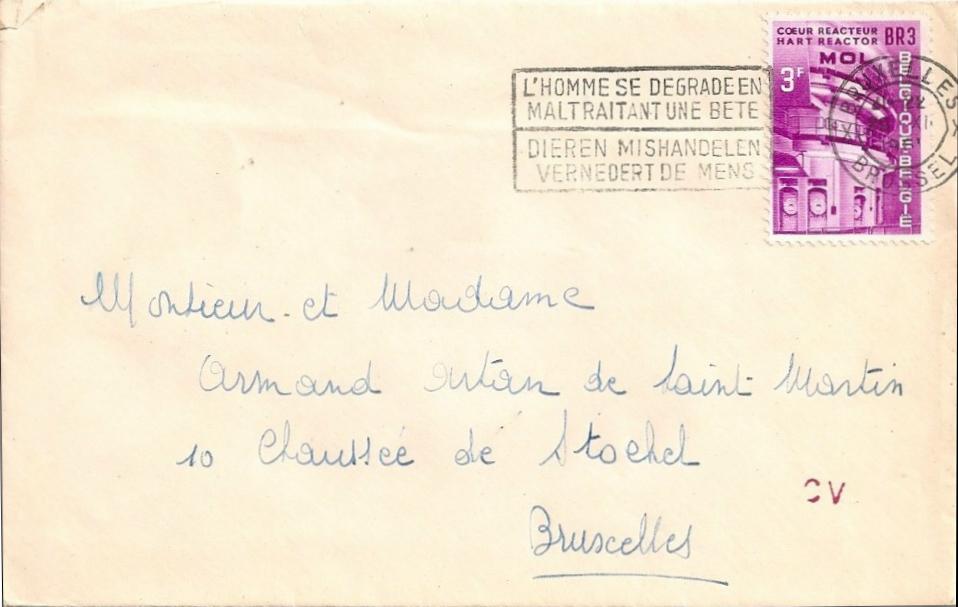 CŒUR REACTEUR
HART REACTOR BR3
MOL
3F
BELGIQUE·BELGIË
BRUXELLES X
BRUSSEL
L'HOMME SE DEGRADE EN
MALTRAITANT UNE BETE
DIEREN MISHANDELEN
VERNEDERT DE MENS
Monsieur et Madame
Armand Artan de Saint-Martin
10 Chaussée de Stockel
Bruxelles
CV